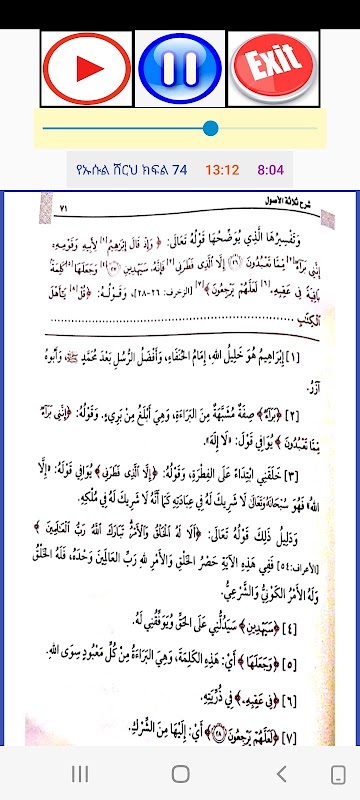 Exit
የኡሱል ሸርህ ክፍል 74 13:12 8:04
شرح ثلاثة الأصول ٧١
وَتَفْسِيرُهَا الَّذِي يُوَضِّحُهَا قَوْلُهُ تَعَالَى: ﴿وَإِذْ قَالَ إِبْرَٰهِيمُ[١] لِأَبِيهِ وَقَوْمِهِۦٓ
إِنَّنِى بَرَآءٌ[٢] مِّمَّا تَعْبُدُونَ ۝٢٦ إِلَّا ٱلَّذِى فَطَرَنِى[٣] فَإِنَّهُۥ سَيَهْدِينِ[٤] ۝٢٧ وَجَعَلَهَا[٥] كَلِمَةًۢ
بَاقِيَةً فِى عَقِبِهِۦ[٦] لَعَلَّهُمْ يَرْجِعُونَ﴾[٧] [الزخرف: ٢٦-٢٨]، وَقَوْلُهُ: ﴿قُلْ[٨] يَٰٓأَهْلَ
ٱلْكِتَٰبِ ........................................
[١] إِبْرَاهِيمُ هُوَ خَلِيلُ اللهِ، إِمَامُ الحُنَفَاءِ، وَأَفْضَلُ الرُّسُلِ بَعْدَ مُحَمَّدٍ ﷺ، وَأَبُوهُ
آزَرُ.
[٢] ﴿بَرَآءٌ﴾ صِفَةٌ مُشَبَّهَةٌ مِنَ البَرَاءَةِ، وَهِيَ أَبْلَغُ مِنْ بَرِيءٍ. وَقَوْلُهُ: ﴿إِنَّنِى بَرَآءٌ
مِّمَّا تَعْبُدُونَ﴾ يُوَافِي قَوْلَ: «لَا إِلَهَ».
[٣] خَلَقَنِي ابْتِدَاءً عَلَى الفِطْرَةِ، وَقَوْلُهُ: ﴿إِلَّا ٱلَّذِى فَطَرَنِى﴾ يُوَافِي قَوْلَهُ: «إِلَّا
اللهُ» فَهُوَ سُبْحَانَهُ وَتَعَالَى لَا شَرِيكَ لَهُ فِي عِبَادَتِهِ كَمَا أَنَّهُ لَا شَرِيكَ لَهُ فِي مُلْكِهِ.
وَدَلِيلُ ذَلِكَ قَوْلُهُ تَعَالَى: ﴿أَلَا لَهُ ٱلْخَلْقُ وَٱلْأَمْرُ تَبَارَكَ ٱللَّهُ رَبُّ ٱلْعَٰلَمِينَ﴾
[الأعراف: ٥٤] فَفِي هَذِهِ الآيَةِ حَصْرُ الخَلْقِ وَالأَمْرِ لِلهِ رَبِّ العَالَمِينَ وَحْدَهُ، فَلَهُ الخَلْقُ
وَلَهُ الأَمْرُ الكَوْنِيُّ وَالشَّرْعِيُّ.
[٤] ﴿سَيَهْدِينِ﴾ سَيَدُلُّنِي عَلَى الحَقِّ وَيُوَفِّقُنِي لَهُ.
[٥] ﴿وَجَعَلَهَا﴾ أَيْ: هَذِهِ الكَلِمَةَ، وَهِيَ البَرَاءَةُ مِنْ كُلِّ مَعْبُودٍ سِوَى اللهِ.
[٦] ﴿فِى عَقِبِهِۦ﴾ فِي ذُرِّيَّتِهِ.
[٧] ﴿لَعَلَّهُمْ يَرْجِعُونَ ۝٢٨﴾ أَيْ: إِلَيْهَا مِنَ الشِّرْكِ.